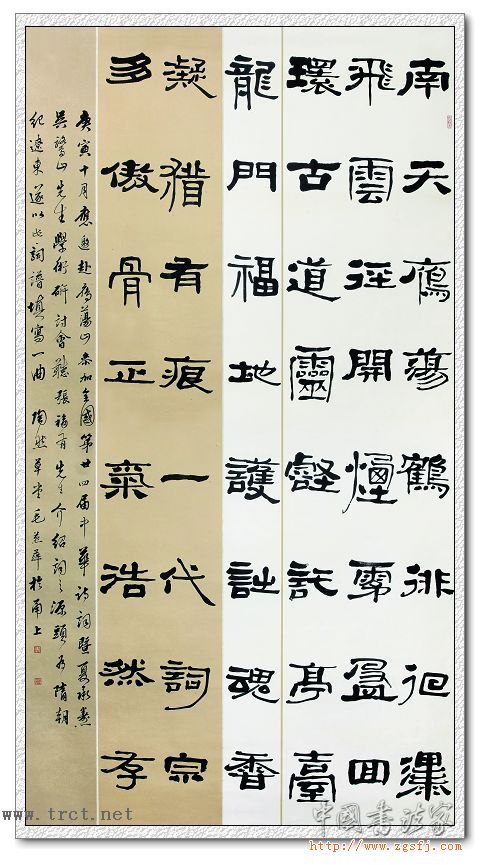 南天鴈蕩鶴徘徊瀑
飛雲徑開煙疊回
環古道靈壑託亭臺
龍門福地護詩魂香
凝猶有痕一代詞宗
多傲骨正氣浩然存
庚寅十月應邀赴鴈蕩山參加全國第廿四届中華詩詞暨夏承燾
吴鷺山先生學術研討會聽張福有先生介紹詞之源頭为隋朝
紀遼東遂以此詞譜填寫一曲 陶然草堂毛燕萍於甬上
www.trct.net
中國書法家
http://www.zgsfj.com